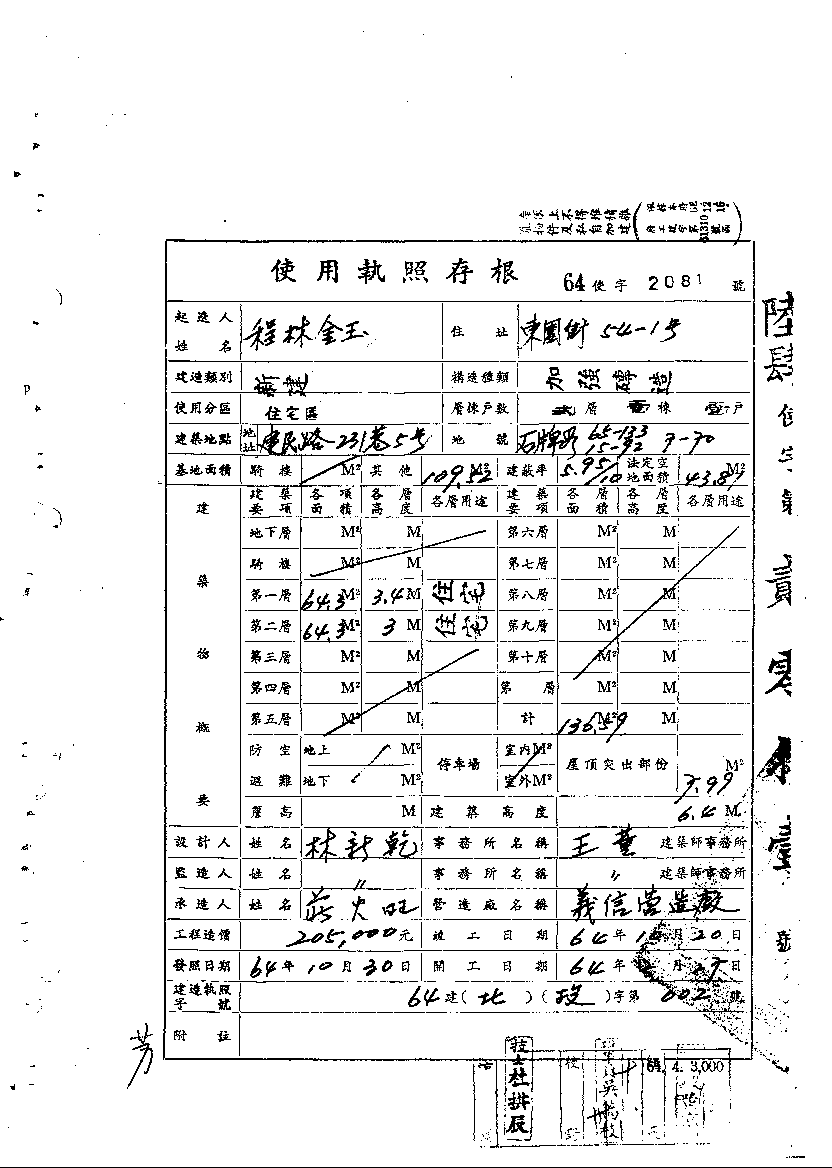 使用執照存根
64使字2081號
起造人姓名 程林金玉 住址 東園街54-1号
建造類別 新建 構造種類 加強磚造
使用分區 住宅區 層棟戶數 層 棟 戶
建築地點 地址 建民路-231巷5号 地號 石牌段
基地面積 騎樓 M² 其他 109.52 M² 建蔽率 5.95/10 法定空地面積 43.81 M²
建築物概要 建築要項 各項面積 各層高度 各層用途 建築要項 各層面積 各層高度 各層用途
地下層 M² M 第六層 M² M
騎樓 M² M 第七層 M² M
第一層 64.3 M² 3.4 M 住宅 第八層 M² M
第二層 64.3 M² 3 M 住宅 第九層 M² M
第三層 M² M 第十層 M² M
第四層 M² M 第 層 M² M
第五層 M² M 計 136.59 M²
防空避難 地上 M² 停車場 室內M² 屋頂突出部份 7.99 M²
地下 M² 室外M²
簷高 M 建築高度 6.4 M
設計人 姓名 林新乾 事務所名稱 王華 建築師事務所
監造人 姓名 〃 事務所名稱 〃 建築師事務所
承造人 姓名 火旺 營造廠名稱 義信營造廠
工程造價 205,000元 竣工日期 64年10月20日
發照日期 64年10月30日 開工日期 64年 月 日
建造執照字號 64建(北)(投)字第602號
附註
芳
技士杜拱辰
64. 4. 3,000
陸肆使字第貳零捌壹號